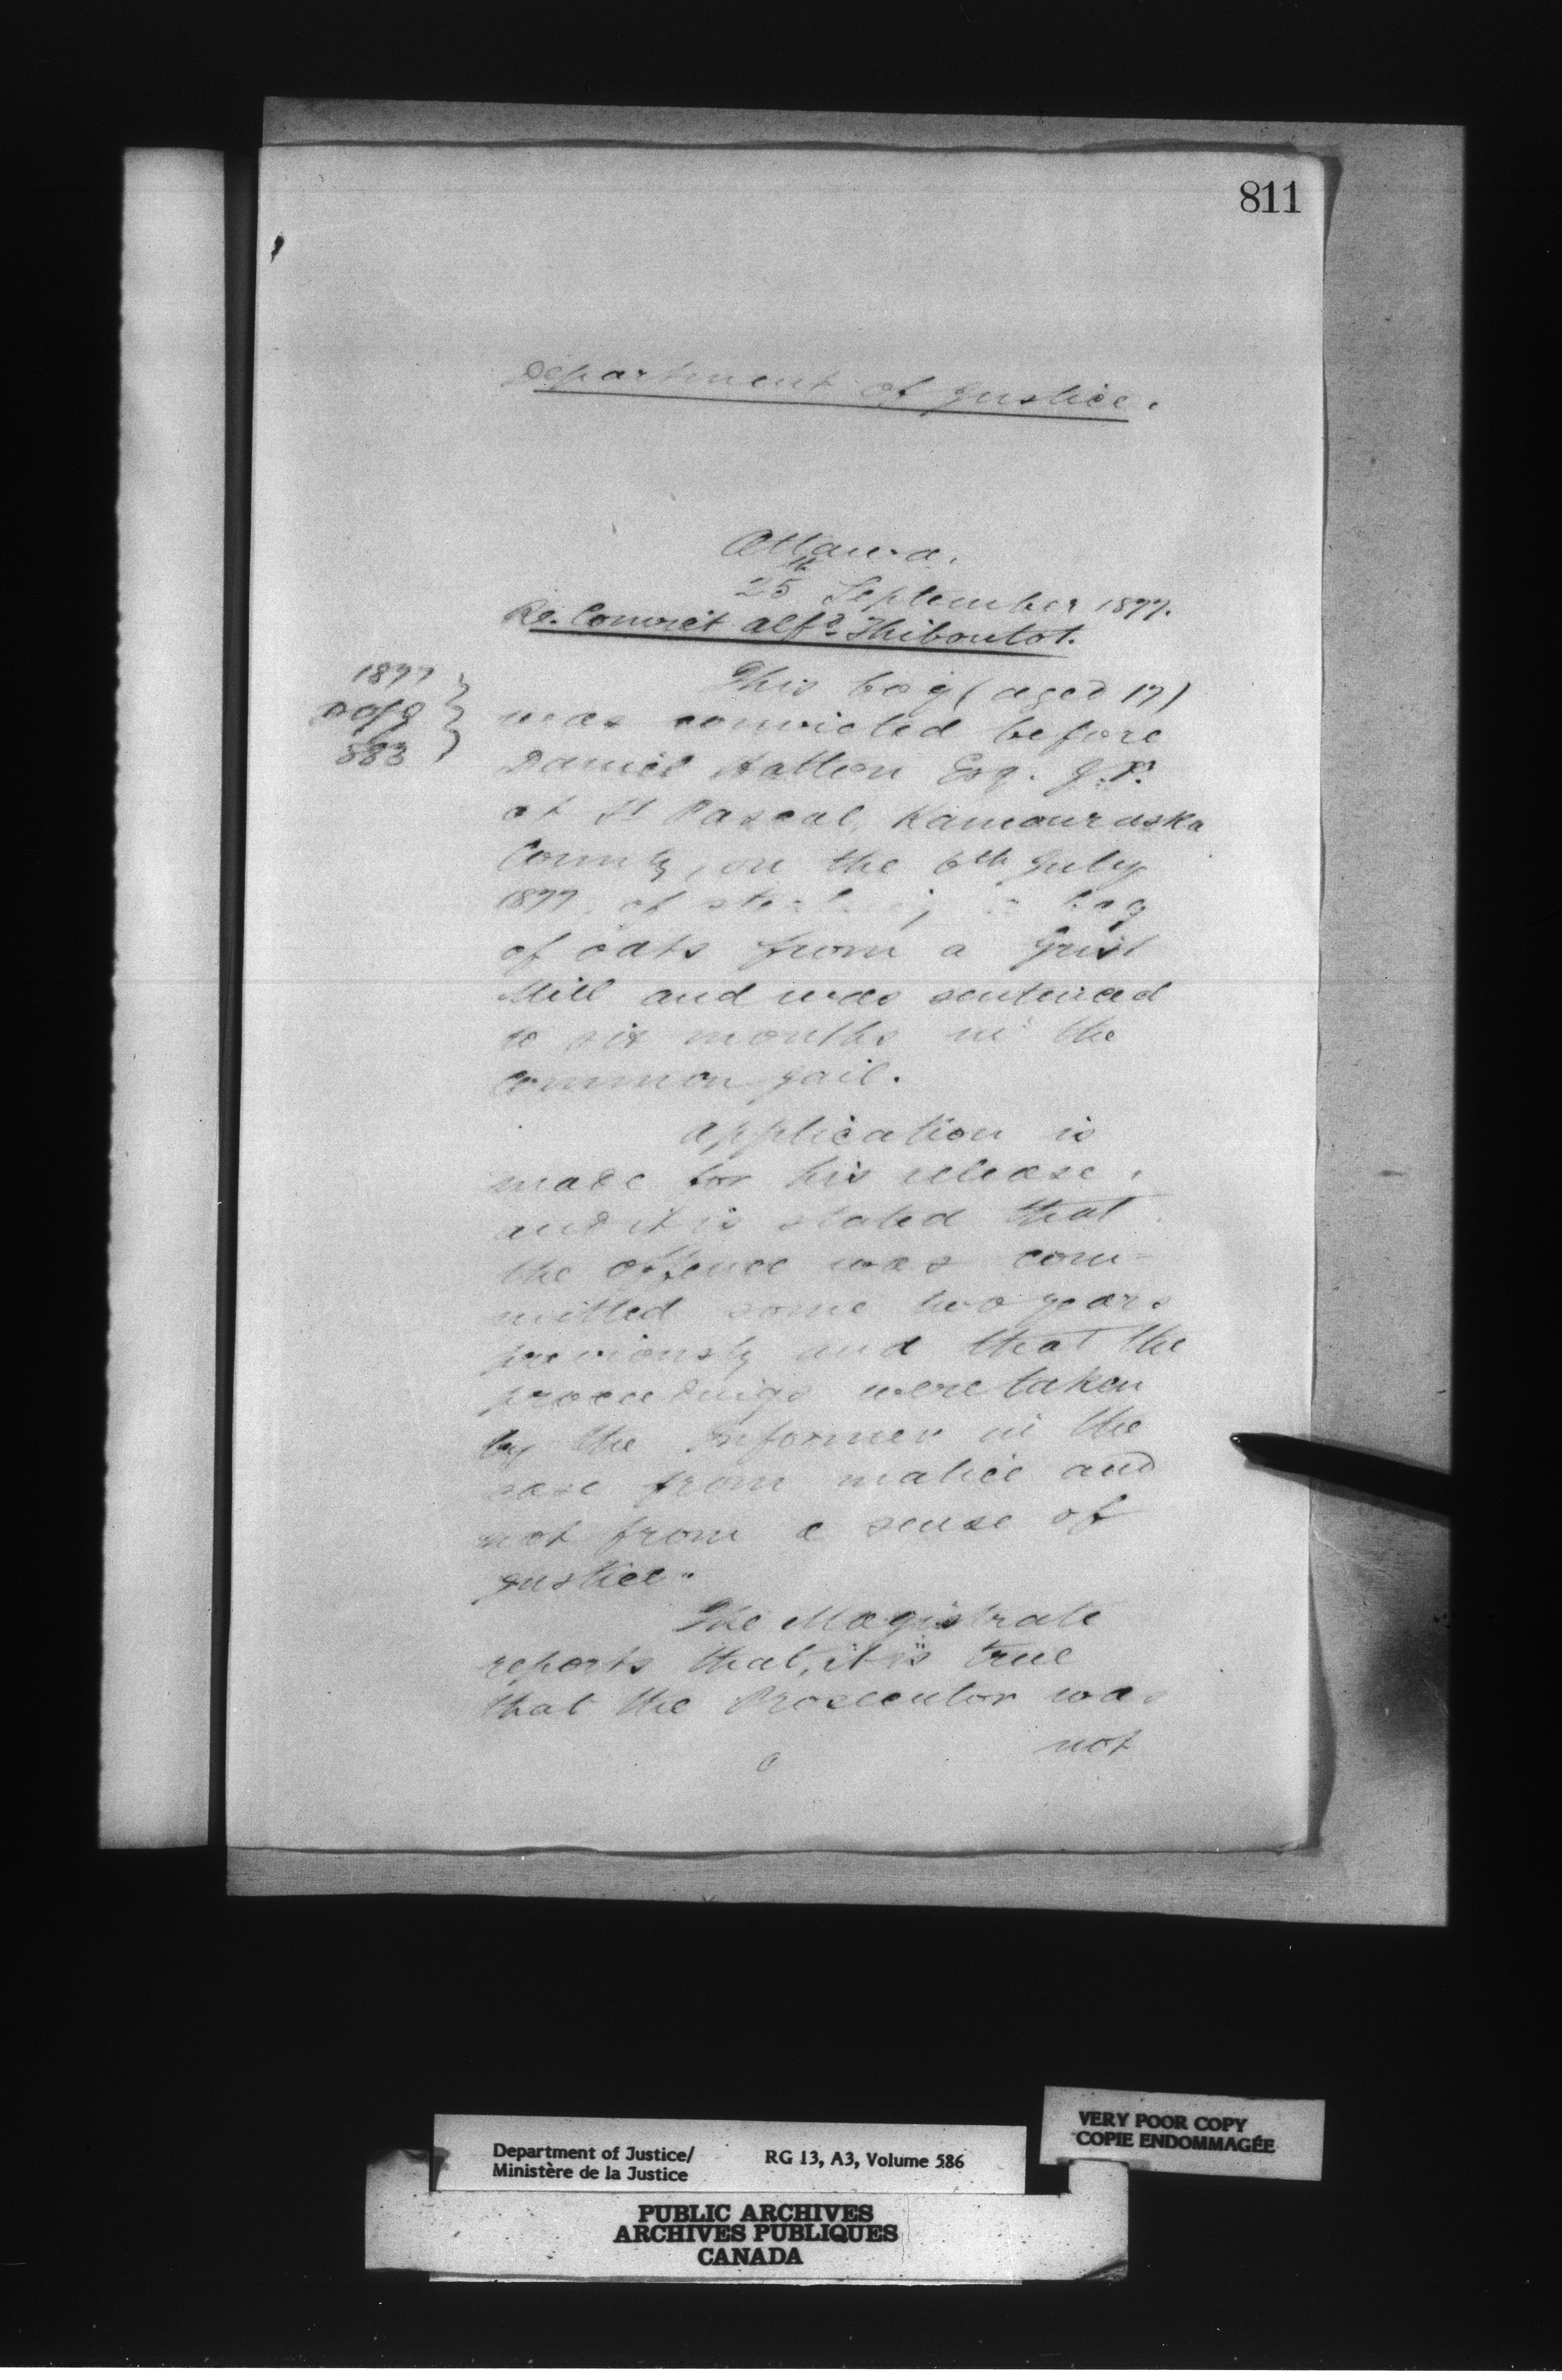 811
Department of Justice.
Ottawa.
25th September 1877.
Re. Convict Alfd. Thiboutot.
1877
883
This boy (aged 17)
was convicted before
Daniel Hatton Esq. J.P.
at St Pascal, Kamouraska
County, on the 6th July
1877, of stealing a bag
of oats from a Grist
Mill and was sentenced
to six months in the
Common gail.
Application is
made for his release,
and it is stated that
the offence was com-
mitted some two years
previously and that the
proceedings were taken
by the Informer in the
case from malice and
not from a sense of
justice.
The Magistrate
reports that, it is true
that the Prosecutor was
not
VERY POOR COPY
COPIE ENDOMMAGÉE
Department of Justice/
Ministère de la Justice
RG 13, A3, Volume 586
PUBLIC ARCHIVES
ARCHIVES PUBLIQUES
CANADA